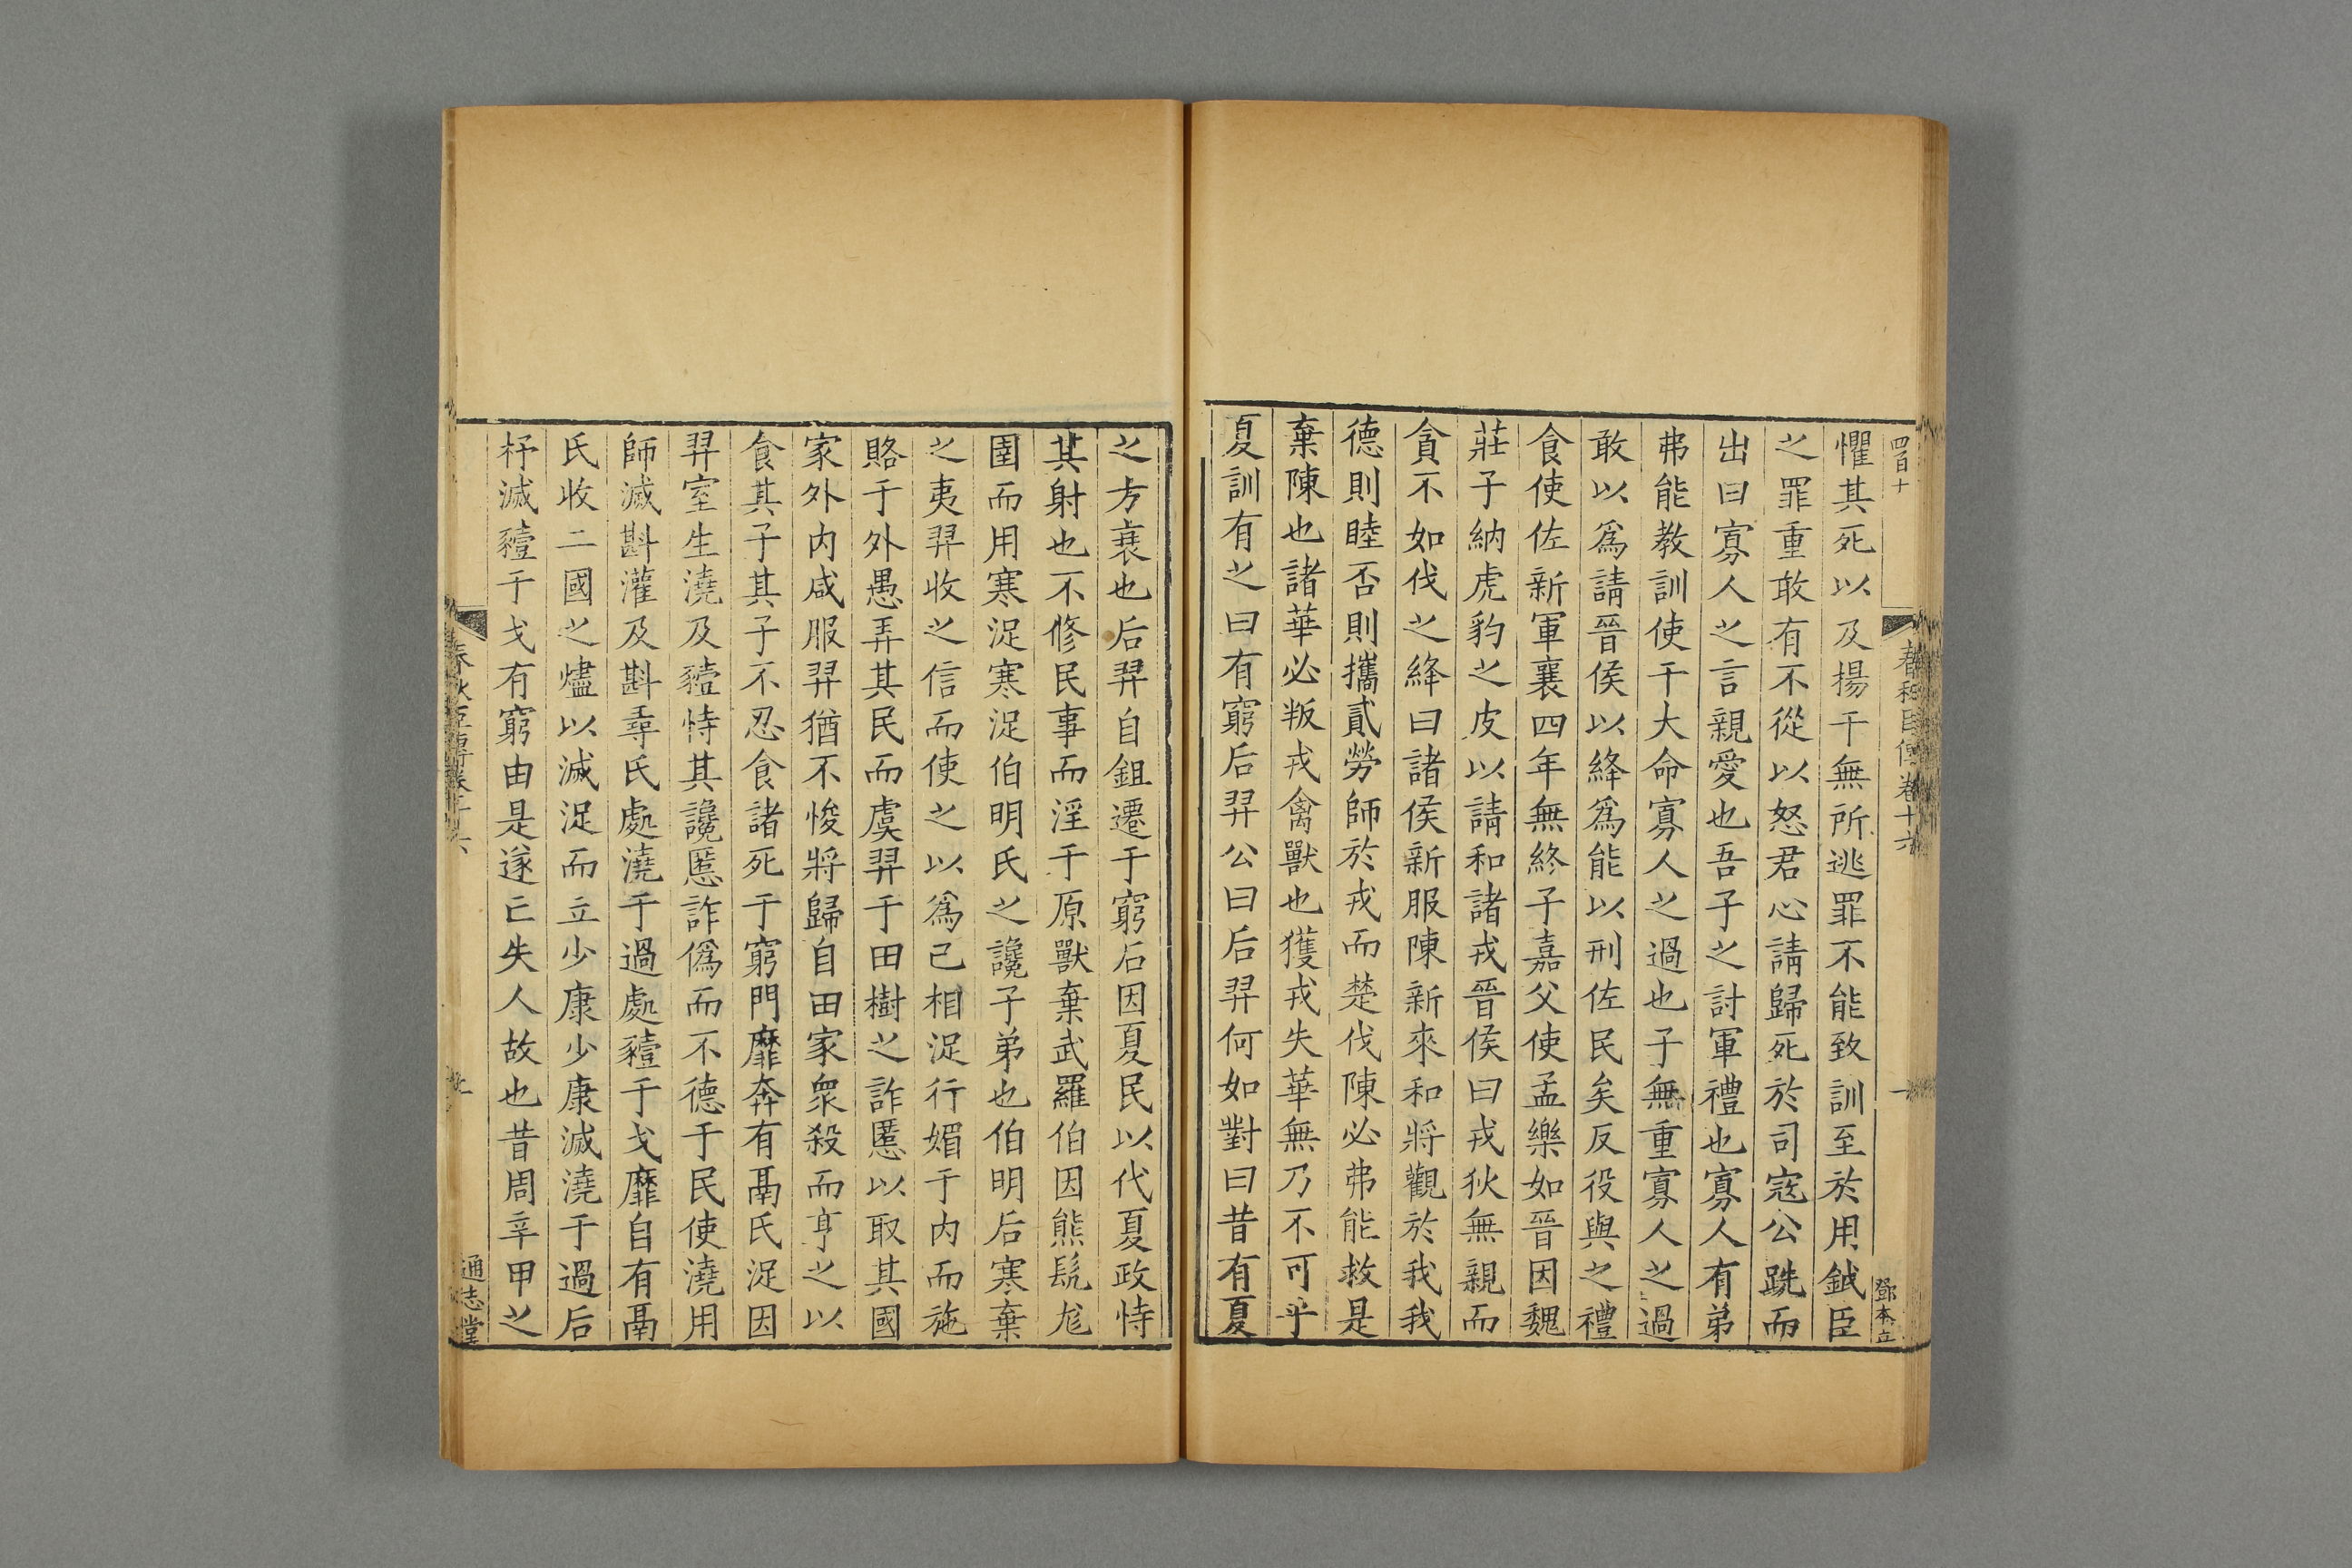 四百十
春秋臣傳卷十六
一
鄧本立
懼其死以及揚干無所逃罪不能致訓至於用鉞臣
之罪重敢有不從以怒君心請歸死於司寇公跣而
出曰寡人之言親愛也吾子之討軍禮也寡人有弟
弗能教訓使干大命寡人之過也子無重寡人之過
敢以爲請晉侯以絳爲能以刑佐民矣反役與之禮
食使佐新軍襄四年無終子嘉父使孟樂如晉因魏
莊子納虎豹之皮以請和諸戎晉侯曰戎狄無親而
貪不如伐之絳曰諸侯新服陳新來和將觀於我我
德則睦否則攜貳勞師於戎而楚伐陳必弗能救是
棄陳也諸華必叛戎禽獸也獲戎失華無乃不可乎
夏訓有之曰有窮后羿公曰后羿何如對曰昔有夏
之方衰也后羿自鉏遷于窮石因夏民以代夏政恃
其射也不修民事而淫于原獸棄武羅伯因熊髡尨
圉而用寒浞寒浞伯明氏之讒子弟也伯明后寒棄
之夷羿收之信而使之以爲己相浞行媚于内而施
賂于外愚弄其民而虞羿于田樹之詐慝以取其國
家外内咸服羿猶不悛將歸自田家衆殺而亨之以
食其子其子不忍食諸死于窮門靡奔有鬲氏浞因
羿室生澆及豷恃其讒慝詐僞而不德于民使澆用
師滅斟灌及斟尋氏處澆于過處豷于戈靡自有鬲
氏收二國之燼以滅浞而立少康少康滅澆于過后
杼滅豷于戈有窮由是遂亡失人故也昔周辛甲之
春秋臣傳卷十六
通志堂